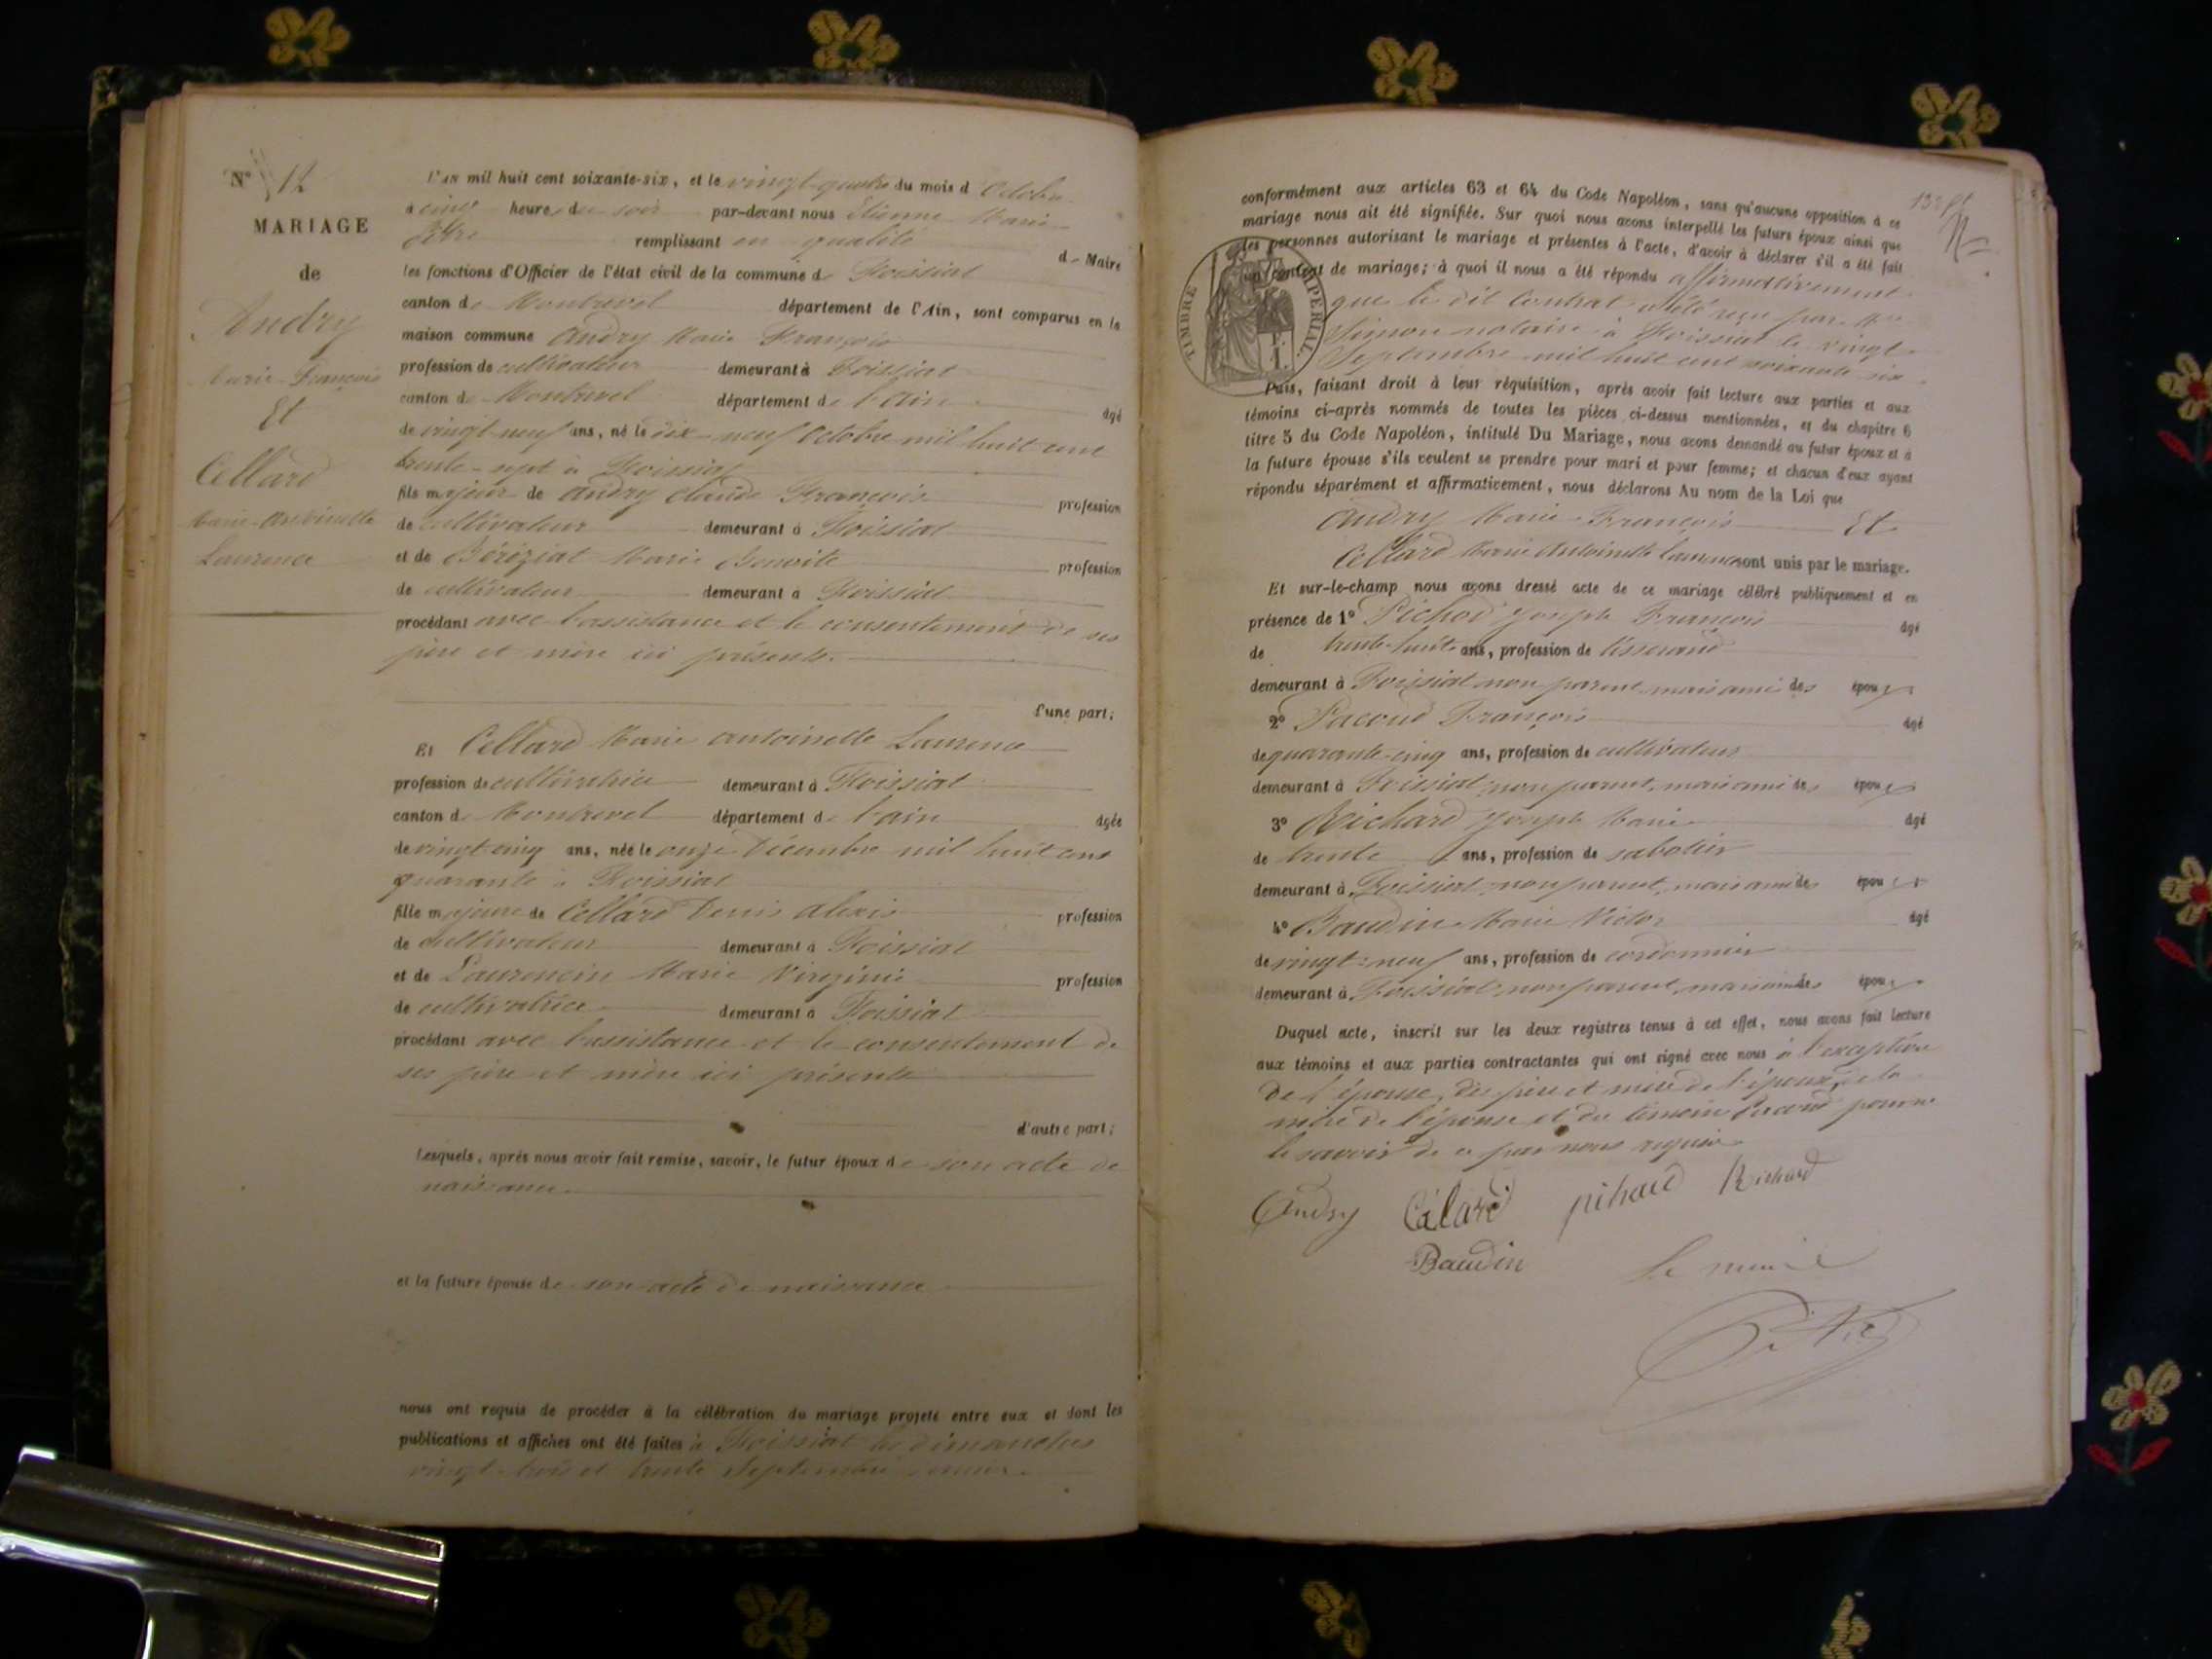 N° 12
MARIAGE
de
Andry
Marie François
Et
Cellard
Marie Antoinette
Laurence
L'an mil huit cent soixante-six, et le vingt-quatre du mois d'Octobre
à cinq heures du soir par-devant nous Etienne Marie
remplissant en qualité de Maire
les fonctions d'Officier de l'état civil de la commune de Foissiat
canton de Montrevel département de l'Ain, sont comparus en la
maison commune Andry Marie François
profession de cultivateur demeurant à Foissiat
canton de Montrevel département de l'Ain âgé
de vingt-neuf ans, né le dix-neuf Octobre mil huit cent
trente-sept à Foissiat
fils majeur de Andry Claude François profession
de cultivateur demeurant à Foissiat
et de Béréziat Marie Benoite profession
de cultivateur demeurant à Foissiat
procédant avec l'assistance et le consentement de ses
père et mère ici présents
d'une part;
Et Cellard Marie Antoinette Laurence
profession de cultivatrice demeurant à Foissiat
canton de Montrevel département de l'ain âgée
de vingt-cinq ans, née le onze Décembre mil huit cent
quarante à Foissiat
fille majeure de Cellard Denis Alexis profession
de cultivateur demeurant à Foissiat
et de Laurencin Marie Virginie profession
de cultivatrice demeurant à Foissiat
procédant avec l'assistance et le consentement de
ses père et mère ici présents
d'autre part;
Lesquels, après nous avoir fait remise, savoir, le futur époux de son acte de
naissance
et la future épouse de son acte de naissance
nous ont requis de procéder à la célébration du mariage projeté entre eux et dont les
publications et affiches ont été faites à Foissiat les dimanches
vingt-trois et trente Septembre dernier
conformément aux articles 63 et 64 du Code Napoléon, sans qu'aucune opposition à ce
mariage nous ait été signifiée. Sur quoi nous avons interpellé les futurs époux ainsi que
les personnes autorisant le mariage et présentes à l'acte, d'avoir à déclarer s'il a été fait
un contrat de mariage; à quoi il nous a été répondu affirmativement
que le dit Contrat a été reçu par Me
Simon notaire à Foissiat le vingt
Septembre mil huit cent soixante six
TIMBRE IMPÉRIAL
Puis, faisant droit à leur réquisition, après avoir fait lecture aux parties et aux
témoins ci-après nommés de toutes les pièces ci-dessus mentionnées, et du chapitre 6
titre 5 du Code Napoléon, intitulé Du Mariage, nous avons demandé au futur époux et à
la future épouse s'ils veulent se prendre pour mari et pour femme; et chacun d'eux ayant
répondu séparément et affirmativement, nous déclarons Au nom de la Loi que
Andry Marie François Et
Cellard Marie Antoinette Laurence sont unis par le mariage.
Et sur-le-champ nous avons dressé acte de ce mariage célébré publiquement et en
présence de 1° Pichod Joseph François âgé
de trente-huit ans, profession de tisserand
demeurant à Foissiat non parent, mais ami des époux
2° Pacoud François âgé
de quarante-cinq ans, profession de cultivateur
demeurant à Foissiat non parent, mais ami des époux
3° Richard Joseph Marie âgé
de trente ans, profession de sabotier
demeurant à Foissiat non parent, mais ami des époux
4° Baudin Marie Victor âgé
de vingt-neuf ans, profession de cordonnier
demeurant à Foissiat non parent, mais ami des époux
Duquel acte, inscrit sur les deux registres tenus à cet effet, nous avons fait lecture
aux témoins et aux parties contractantes qui ont signé avec nous à l'exception
de l'épouse, des père et mère de l'époux, de la
mère de l'épouse et du témoin Pacoud pour ne
le savoir de ce par nous requis
Andry Célard pihaud Richard
Baudin Le maire